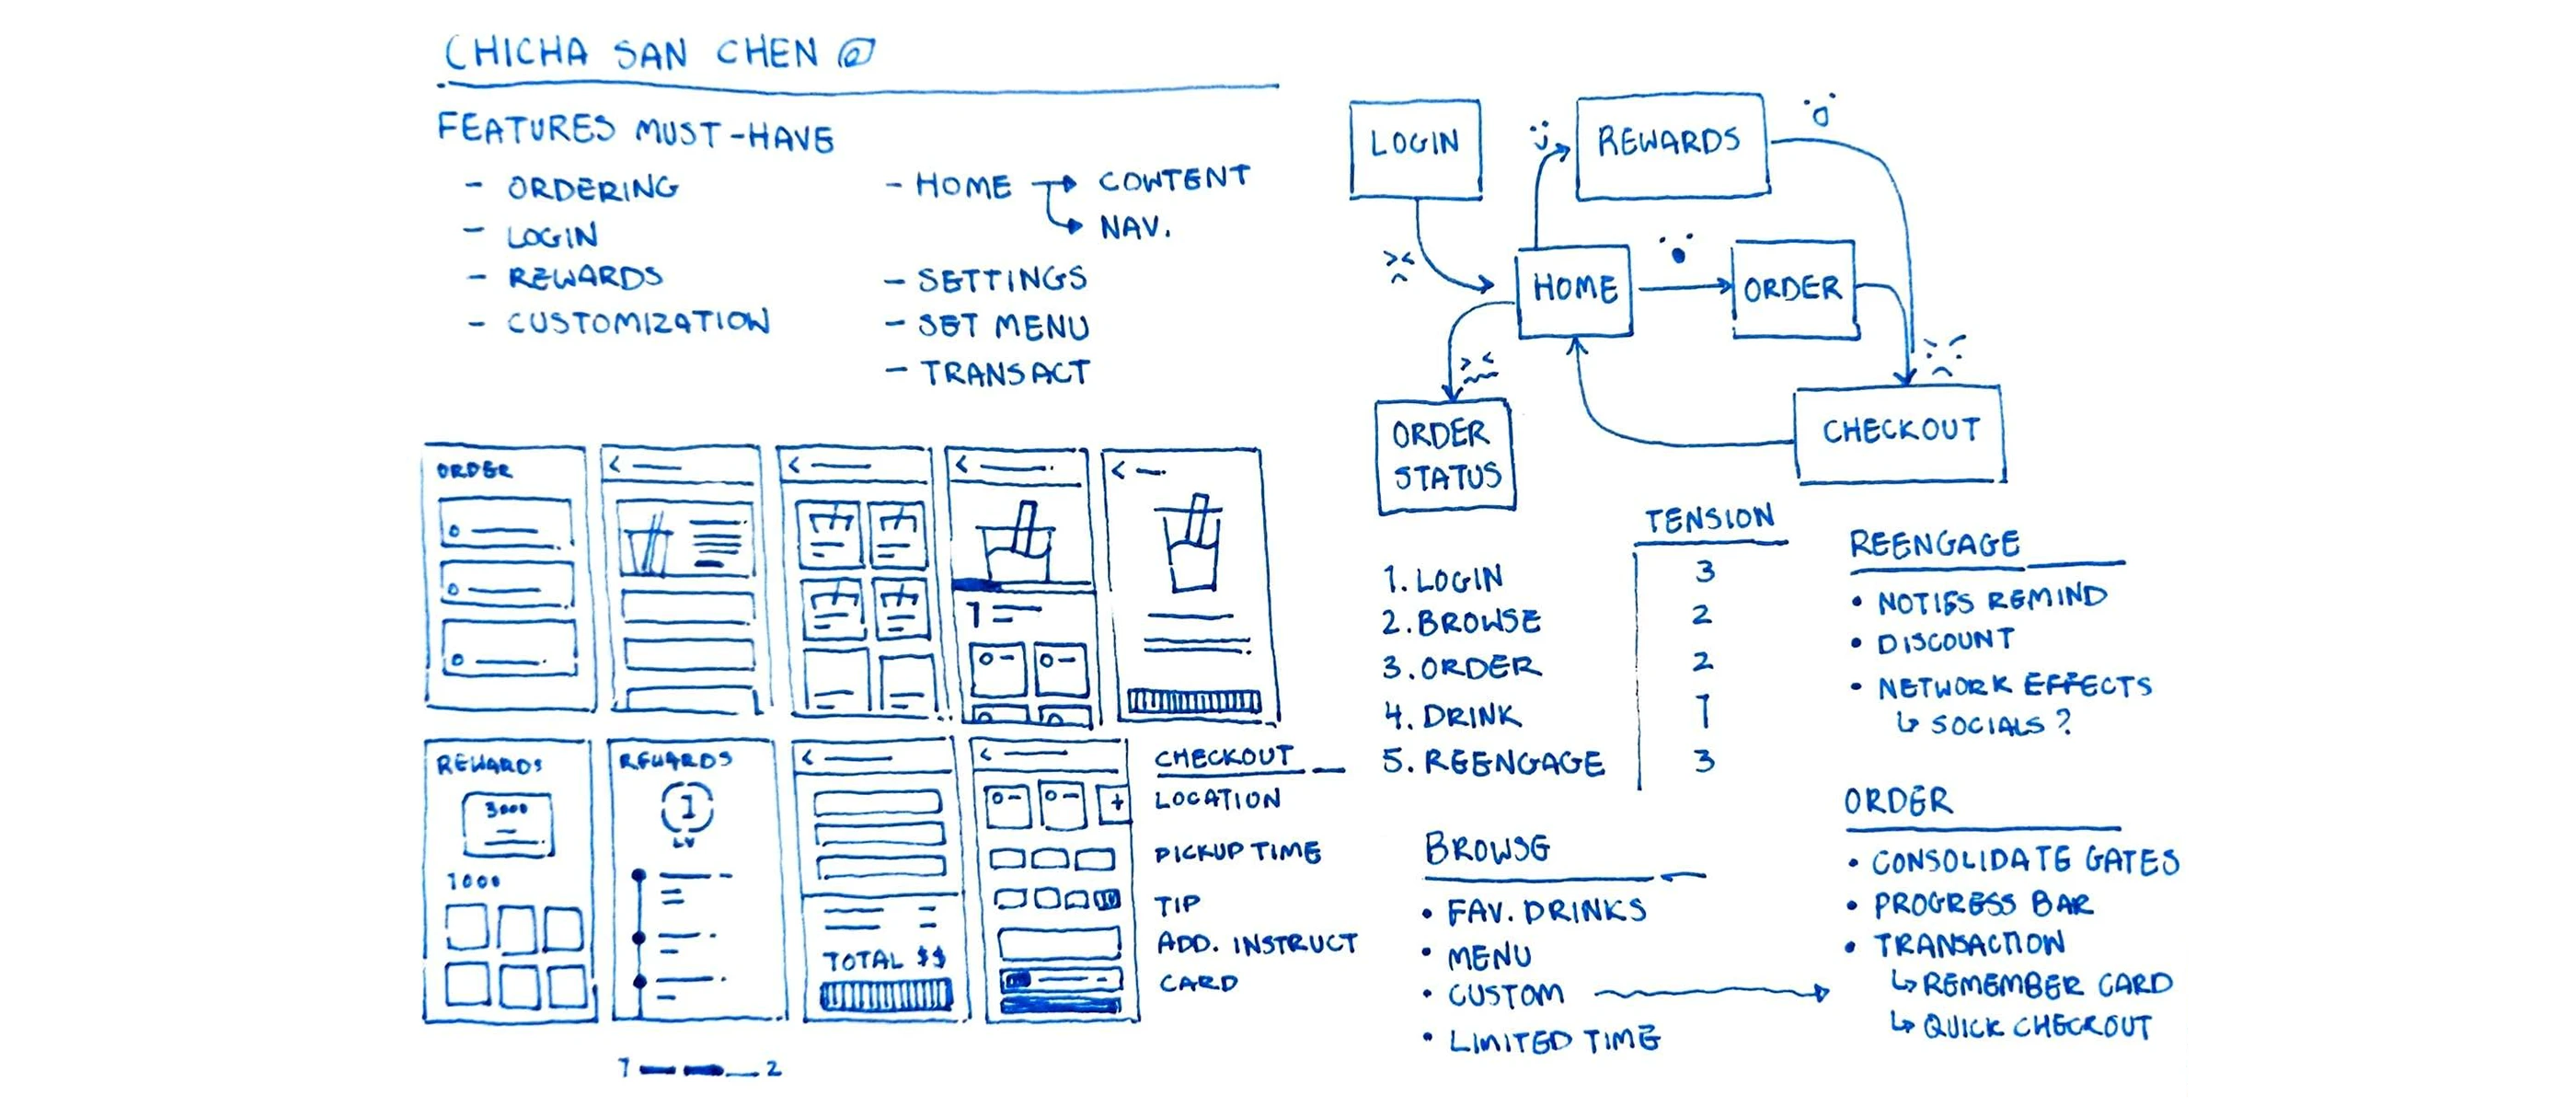 CHICHA SAN CHEN
FEATURES MUST-HAVE
- ORDERING
- LOGIN
- REWARDS
- CUSTOMIZATION
- HOME → CONTENT
↳ NAV.
- SETTINGS
- SET MENU
- TRANSACT
LOGIN
REWARDS
HOME
ORDER
ORDER
STATUS
CHECKOUT
ORDER
1
REWARDS
3000
1000
REWARDS
1
LV
TOTAL $$
1 2
CHECKOUT
LOCATION
PICKUP TIME
TIP
ADD. INSTRUCT
CARD
TENSION
1. LOGIN 3
2. BROWSE 2
3. ORDER 2
4. DRINK 1
5. REENGAGE 3
REENGAGE
• NOTIFS REMIND
• DISCOUNT
• NETWORK EFFECTS
↳ SOCIALS?
BROWSE
• FAV. DRINKS
• MENU
• CUSTOM
• LIMITED TIME
ORDER
• CONSOLIDATE GATES
• PROGRESS BAR
• TRANSACTION
↳ REMEMBER CARD
↳ QUICK CHECKOUT